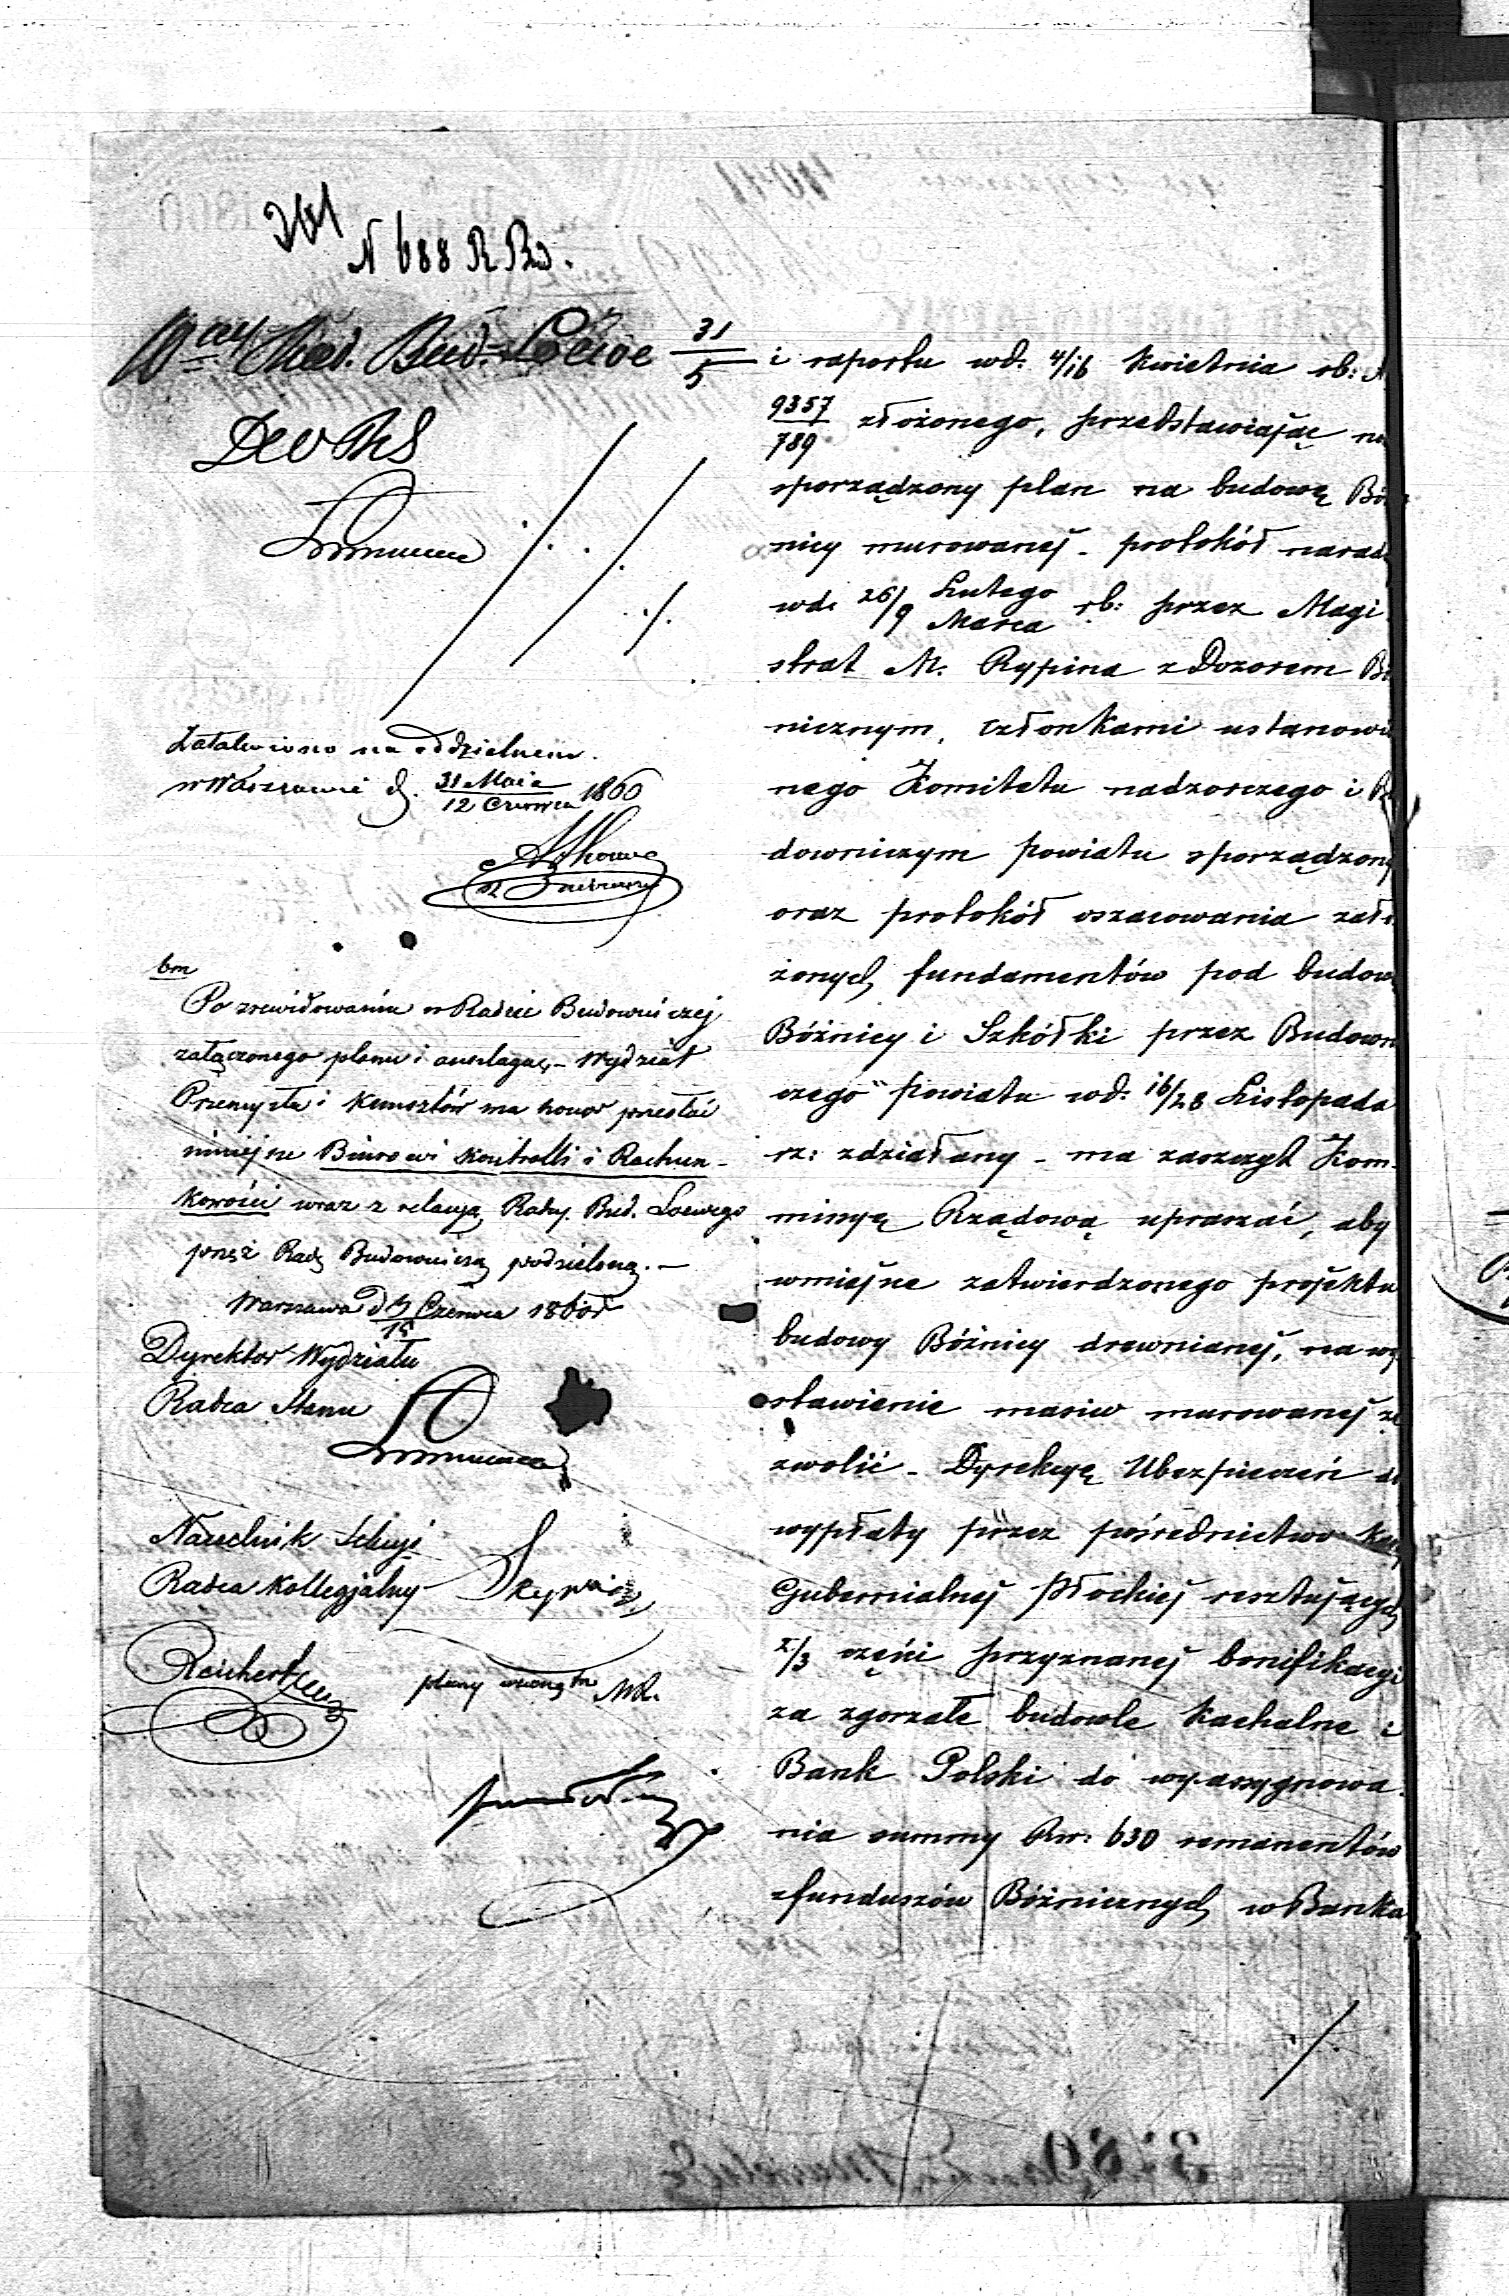 N 688 R Bd.
Rad. Bud. Loewe 31/5
Załatwiono na oddzielnem.
w Warszawie d. 31 Maia/12 Czerwca 1860
bm
Po zrewidowaniu w Radzie Budowniczej
załączonego planu i anszlagu, – Wydział
Przemysłu i Kunsztów ma honor przesłać
niniejsze Biurowi Kontrolli i Rachun-
kowości wraz z relacyą Radcy Bud. Loewego
przez Radę Budowniczą podzieloną. –
Warszawa d 3/15 Czerwca 1860 r
Dyrektor Wydziału
Radca Stanu
Naczelnik Sekcyi
Radca Kollegjalny
Reichert
plany
i raportu wd. 4/16 Kwietnia rb:
9357/789 złożonego, przedstawiając
sporządzony plan na budowę Bóź
nicy murowanej – protokół narady
wd. 26/9 Lutego/Marca rb: przez Magi-
strat M. Rypina z Dozorem Bó
nicznym, członkami ustanowio
nego Komitetu nadzorczego i Bu
downiczym powiatu sporządzony
oraz protokół oszacowania zało
żonych fundamentów pod budowę
Bóźnicy i Szkółki przez Budowni
czego powiatu wd. 16/28 Listopada
rz: zdziałany – ma zaszczyt Kom-
missyą Rządową upraszać, aby
wmiejsce zatwierdzonego projektu
budowy Bóźnicy drewnianej, na wy
stawienie masiw murowanej ze
zwolić – Dyrekcyę Ubezpieczeń do
wypłaty przez pośrednictwo Kassy
Gubernialnej Płockiej resztujących
2/3 części przyznanej bonifikacyi
za zgorzałe budowle Kachalne i
Bank Polski do wyassygnowa-
nia summy Rsr: 630 remanentów
z funduszów Bóźnicznych w Banku